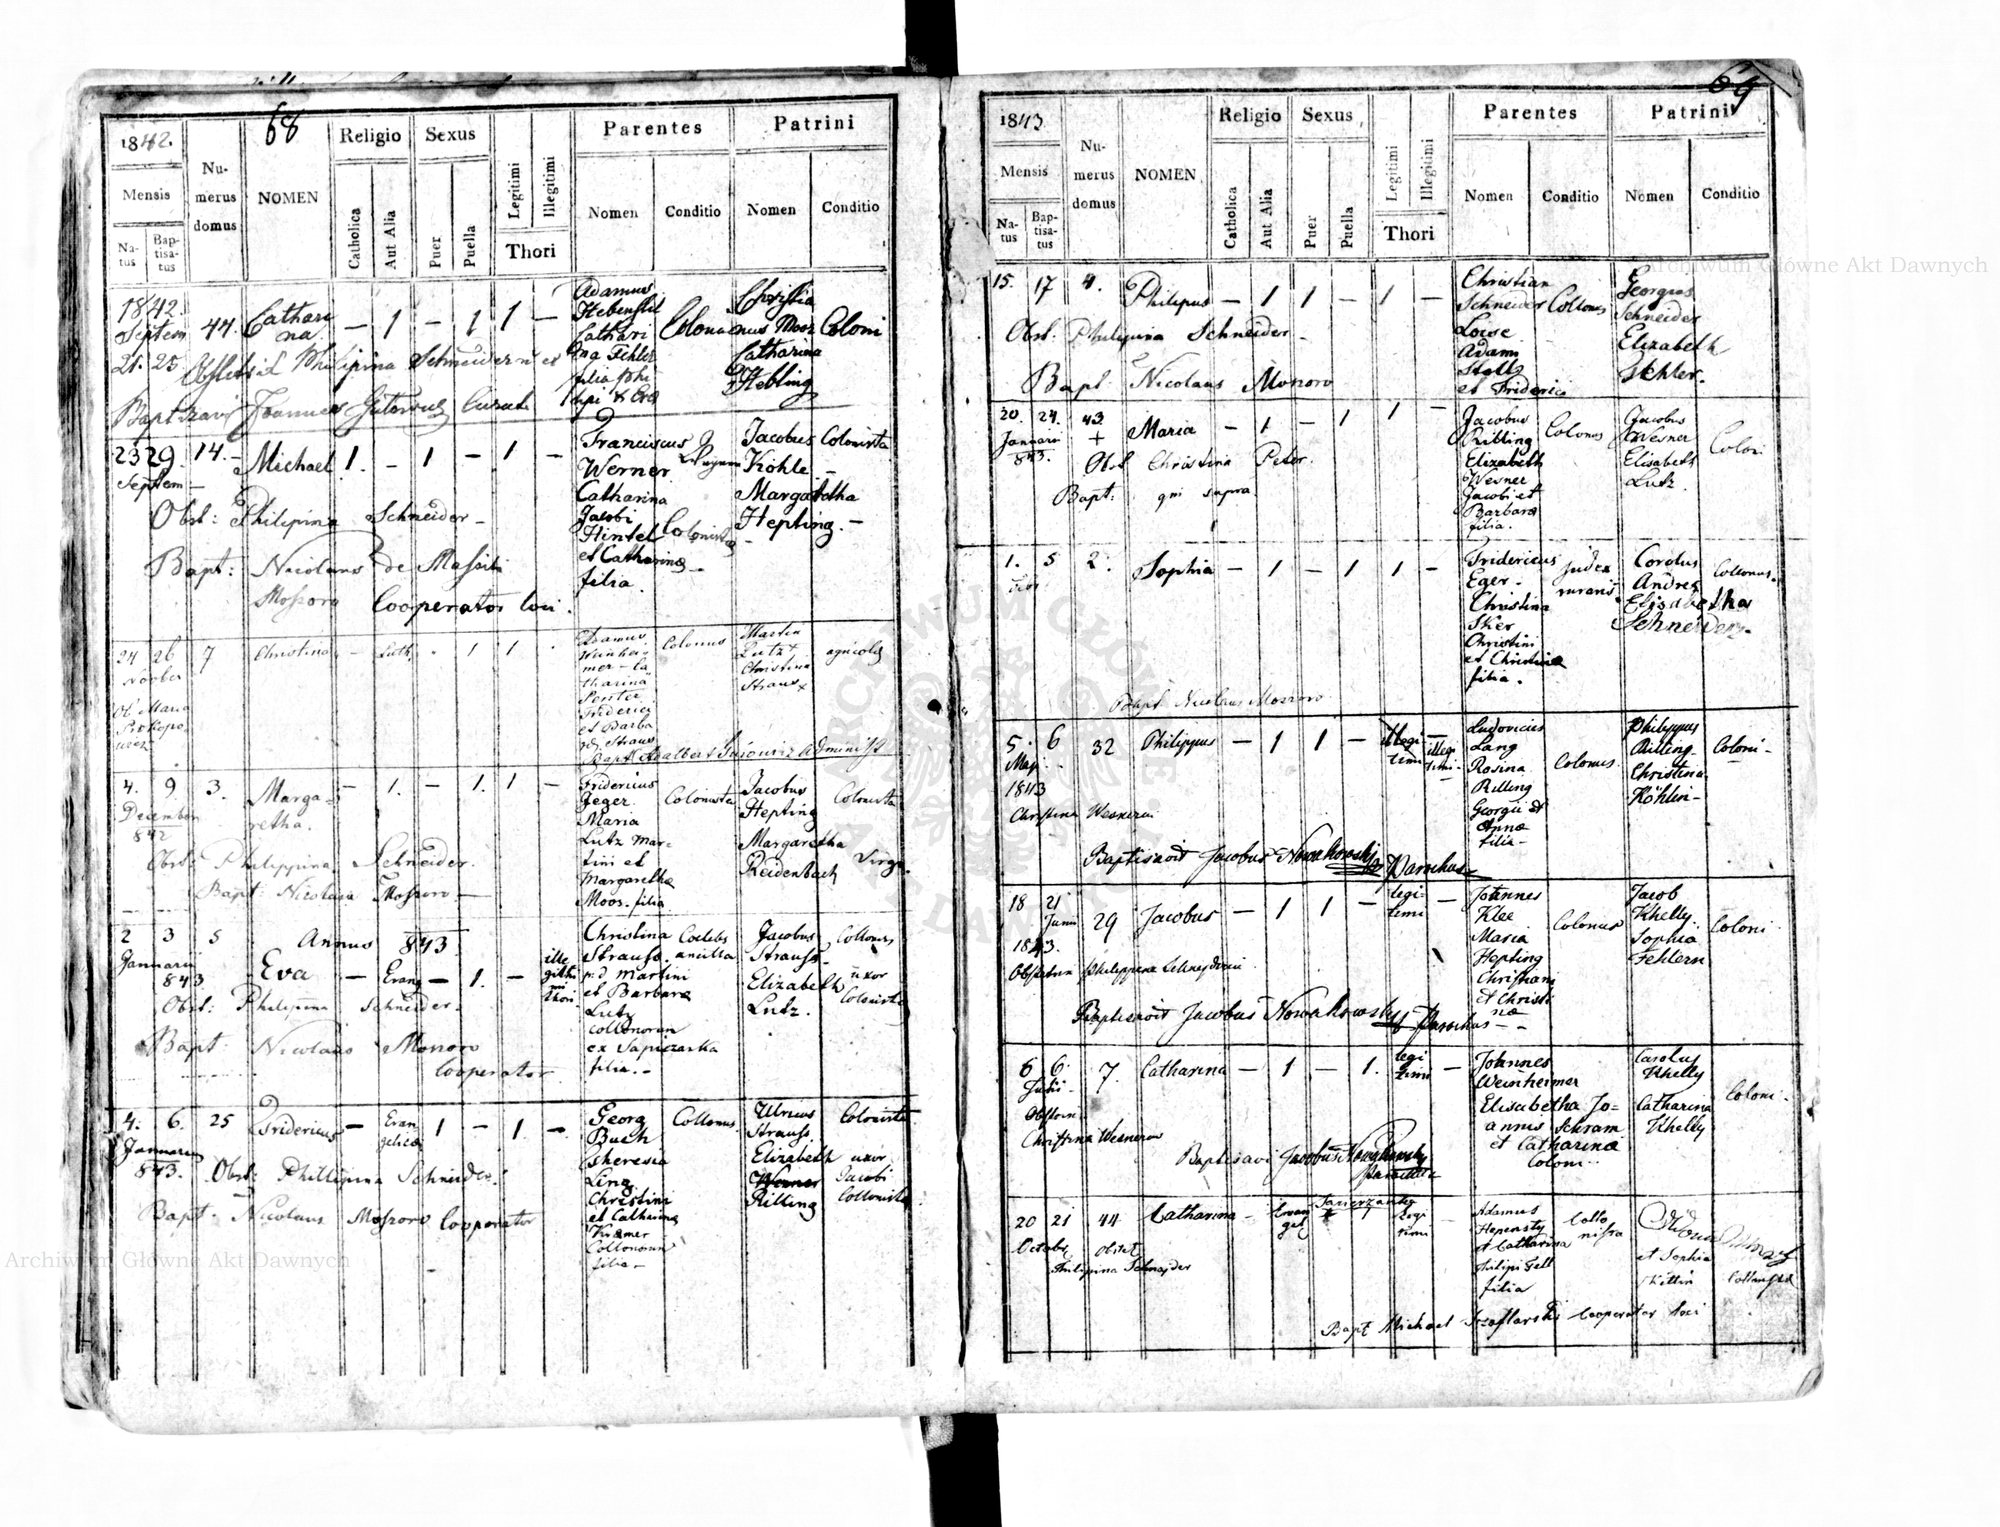 68
1842.
Mensis
Na-
tus
Bap-
tisa-
tus
Nu-
merus
domus
NOMEN
Religio
Catholica
Aut Alia
Sexus
Puer
Puella
Legitimi
Illegitimi
Thori
Parentes
Nomen
Conditio
Patrini
Nomen
Conditio
1842.
Septem
21. 25
44.
Cathari
na
— 1 — 1 1 —
Adamus
Cathari
na Fehler
filia Phi
lipi & Eva
Coloni
Christia
nus Moos
Catharina
Hebling
Coloni
Philipina Schneider
Baptizavi Joannes
23 29
Septem
14. —
Michael
1. — 1 — 1 —
Franciscus
Werner
Catharina
Jacobi
Hintel
et Catharina
filia
Colonista
Jacobus
Köhle
Margaretha
Hepting. —
Colonista
—
Obst: Philipina Schneider —
Bapt: Nicolaus de
Moszoro Cooperator loci.
24 26
Novber
7
Christina
— Luth. . 1 1 .
Adamus
Weinhei
mer — Ca
tharina
Friderici
et Barba
ra Straus
Colonus
Martin
Lutz &
Christina
Straus
agricola
Ob. Maria
Prokopo
wicz
Bapt Adalbert Administ
4. 9
December
842
3.
Marga-
retha.
— 1. — 1. 1 —
Fridericus
Jeger.
Maria
Lutz Mar-
tini et
Margaretha
Moos. filia
Colonista
Jacobus
Hepting
Margaretha
Reidenbach
Colonista
Virgo.
Obst. Philippina Schneider.
Bapt: Nicolaus Moszoro —
2 3
Januarii
843.
5
Annus 843
Eva
— Evang — 1. —
ille
gitti
mi
thori.
Christina
Strauss.
p.d Martini
et Barbara
Lutz
collonorum
ex Sapiezanka
filia. —
Coelebs
ancilla
Jacobus
Strauss.
Elizabeth
Lutz.
Collonus
uxor
Colonista
Obst: Philipina Schneider.
Bapt: Nicolaus Moszoro
Cooperator
4. 6.
Januarii
843.
25
Fridericus
— Evan
gelica 1 — 1. —
Georg
Buch
Theresia
Ling
Christini
et Catharina
Kramer
Collonorum
filia —
Collonus.
Strauss.
Elizabeth
Rilling
Colonista
uxor
Jacobi
Collonista
Obst: Phillipina Schneider.
Bapt. Nicolaus Moszoro Cooperator
69
1843
Mensis
Na-
tus
Bap-
tisa-
tus
Nu-
merus
domus
NOMEN
Religio
Catholica
Aut Alia
Sexus
Puer
Puella
Legitimi
Illegitimi
Thori
Parentes
Nomen
Conditio
Patrini
Nomen
Conditio
15. 17
4.
Philipus
— 1 1 — 1 —
Christian
Schneider
Loise
Adami
Stolz
et Friderica
Collonus
Georgius
Schneider
Elizabeth
Obst: Philipina Schneider.
Bapt: Nicolaus Moszoro
20. 24.
Januarii
843.
43.
+
Maria
— 1 — 1 1 —
Jacobus
Rilling
Elizabeth
Wesner
Jacobi et
Barbara
filia.
Colonus
Jacobus
Wesner
Elisabeth
Lutz.
Coloni
Obst Christina Peter.
Bapt: qui supra
1. 5
2.
Sophia
— 1 — 1 1 —
Fridericus
Eger —
Christina
Christini
et Christina
filia.
Judex
ruralis.
Corolus
Andres
Elisabetha
Schneider.
Collonus.
Bapt. Nicolaus Moszoro
5. 6
Maji
1843
32
Philippus
— 1 1 —
illegi
timi
illegi
timi —
Ludovicus
Lang
Rosina
Rilling
Georgii et
Anna
filia —
Colonus.
Philippus
Rilling —
Christina
Köhlin —
Coloni —
Christina Wesnerin
Baptisavit Jacobus Nowakowski Parochus
18 21
Junii
1843.
29
Jacobus
— 1 1 —
legi-
timi
—
Johannes
Klee
Maria
Hepting
Christiani
et Christi
na
Colonus
Jacob
Khelly.
Sophia
Fehlern
Coloni —
Obstetrix Philippina Schneyderin
Baptisavit Jacobus Nowakowsky Parochus — —
6 6.
Julii —
7.
Catharina
— 1 — 1.
legi
timi —
Johannes
Weinheimer
Elisabetha Jo-
annis Schram
et Catharina
Coloni —
Carolus
Khelly
Catharina
Khelly
Coloni —
Christina Wesnerin
Baptisavi Jacobus Nowakowsky
Parochus
20 21
October
44
Catharina
—
Evan
gel
legi
timi
—
Adamus
et Catharina
filia
Collo
nista
et Sophia
Obstet
Philipina Schnayder
Bapt Michael Szaflarski Cooperator loci
Archiwum Główne Akt Dawnych
Archiwum Główne Akt Dawnych
ARCHIWUM GŁÓWNE AKT DAWNYCH